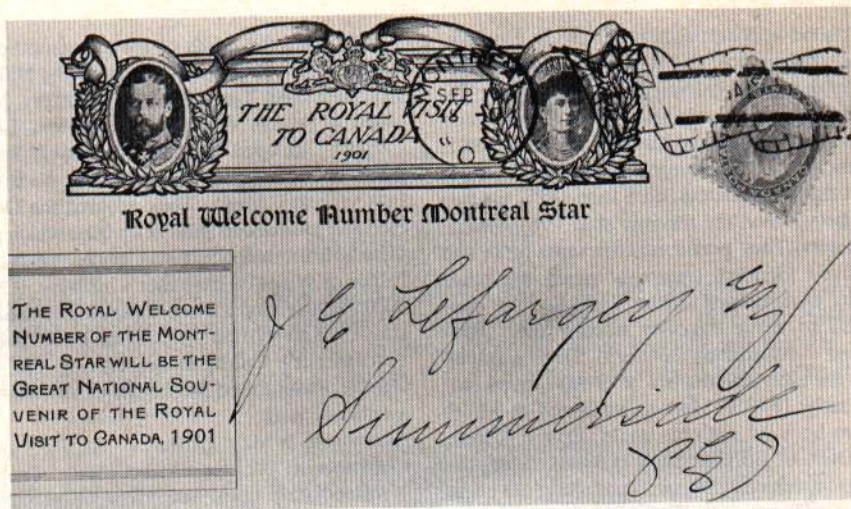 THE ROYAL VISIT
TO CANADA
1901
MONTREAL
SEP
Royal Welcome Number Montreal Star
THE ROYAL WELCOME
NUMBER OF THE MONT-
REAL STAR WILL BE THE
GREAT NATIONAL SOU-
VENIR OF THE ROYAL
VISIT TO CANADA, 1901
J E Lefargey
Summerside
PEI